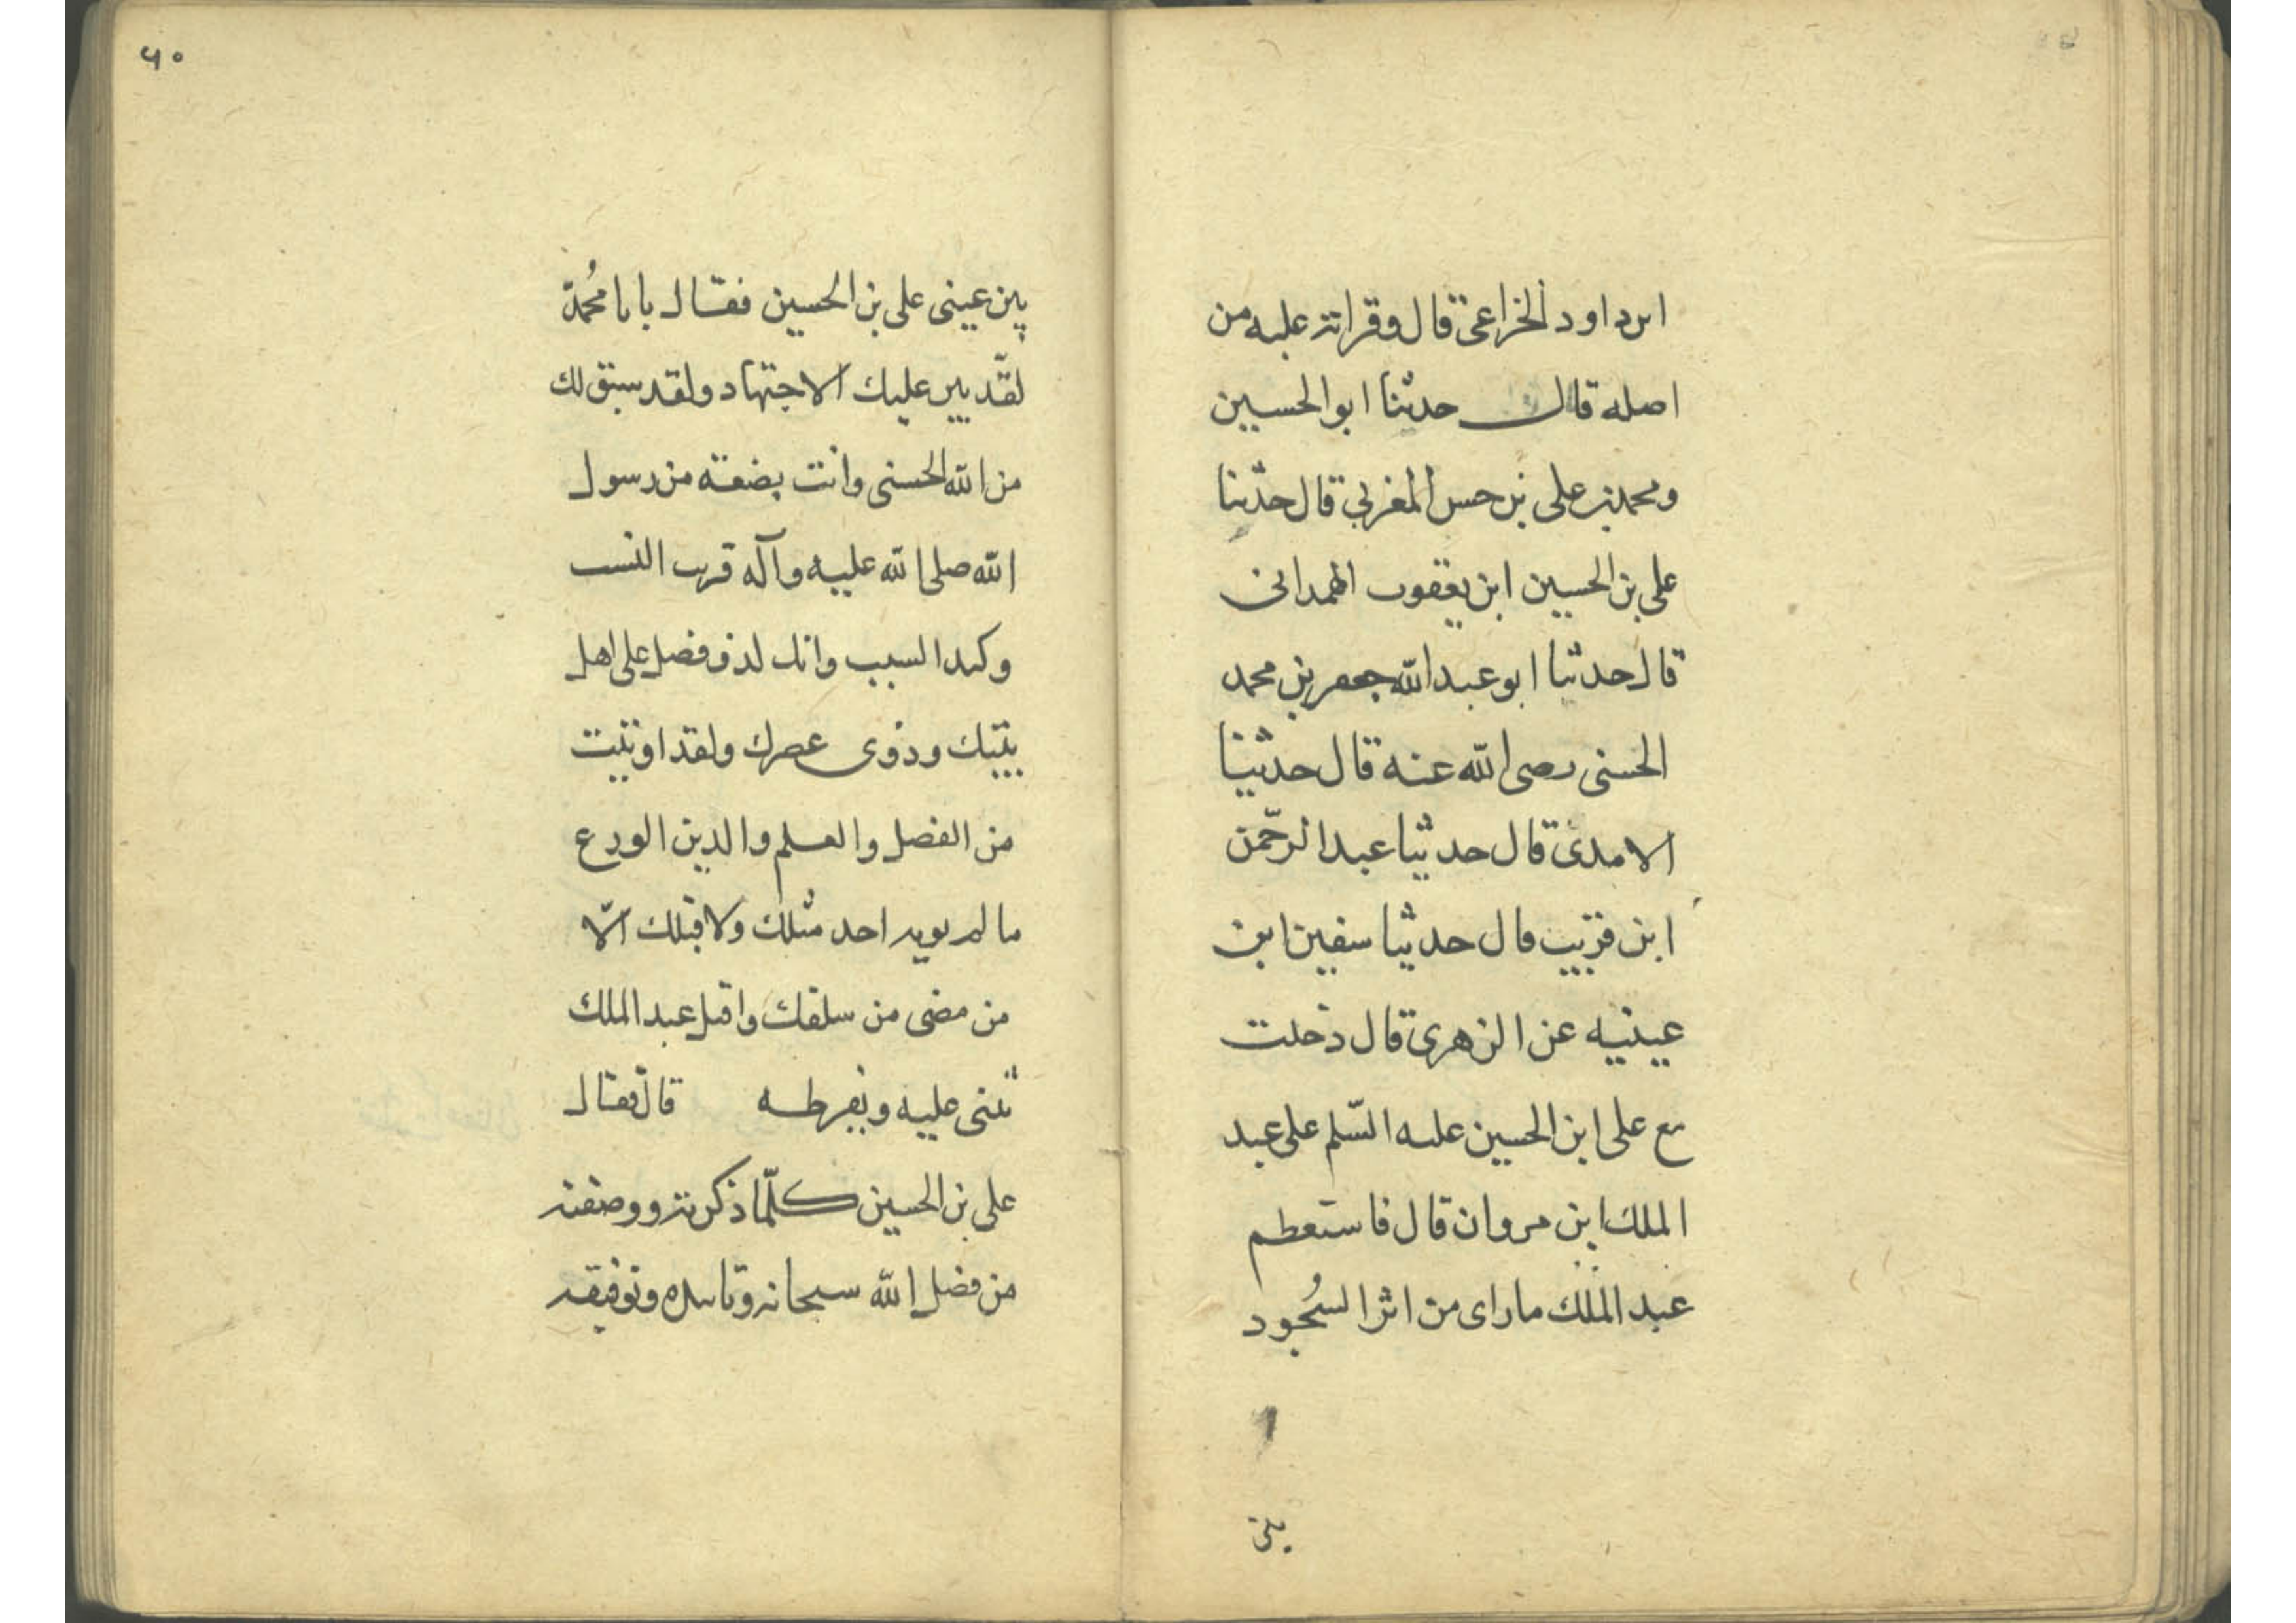 ابن داود الخزاعی قال وقراته علیه من
اصله قال حدثنا ابوالحسین
ومحمد بن علی بن حسن المغربی قال حدّثنا
علی بن الحسین ابن یعقوب الهمدانی
قال حدثنا ابو عبد الله جعفر بن محمد
الحسنی رضی الله عنه قال حدثنا
الامدی قال حدثنا عبد الرحمن
ابن قریب قال حدثنا سفین ابن
عینیه عن الزهری قال دخلت
مع علی ابن الحسین علیه السّلم علی عبد
الملك ابن مروان قال فاستعظم
عبد الملك ما رای من اثر السُجود
بین
۶۰
بین عینی علی بن الحسین فقال یا با مُحمّد
لقد بین علیك الاجتهاد ولقد سبق لك
من الله الحسنی وانت بضعة من رسول
الله صلی الله علیه وآله قریب النسب
وکید السبب وانك لذو فضل علی اهل
بیتك وذوی عصرك ولقد اوتیت
من الفضل والعلم والدین الورع
ما لم یوید احد مثلك ولا قبلك الّا
من مضی من سلفك واقبل عبد الملك
یثنی علیه ویفرطه قال فقال
علی بن الحسین کلّما ذکرته ووصفته
من فضل الله سبحانه وتاییده وتوفیقه